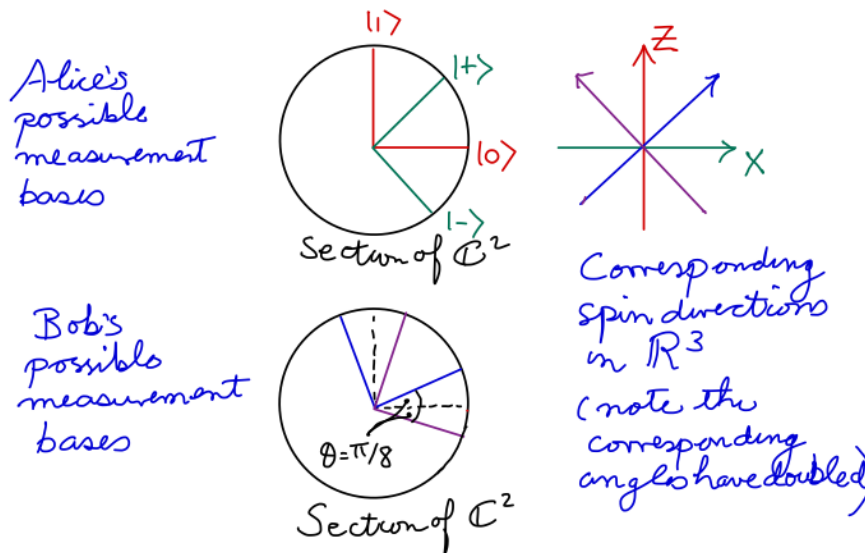 Alice's
possible
measurement
bases
|1⟩
|+⟩
|0⟩
|-⟩
Section of ℂ²
Z
X
Corresponding
spin directions
in ℝ³
(note the
corresponding
angles have doubled)
Bob's
possible
measurement
bases
θ=π/8
Section of ℂ²